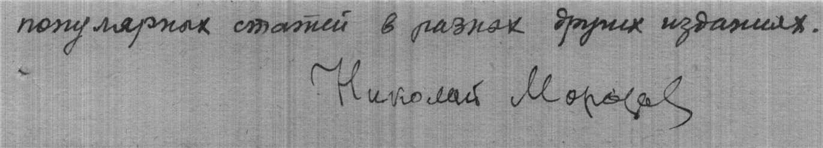 популярных статей в разных других изданиях.
Николай Морозов